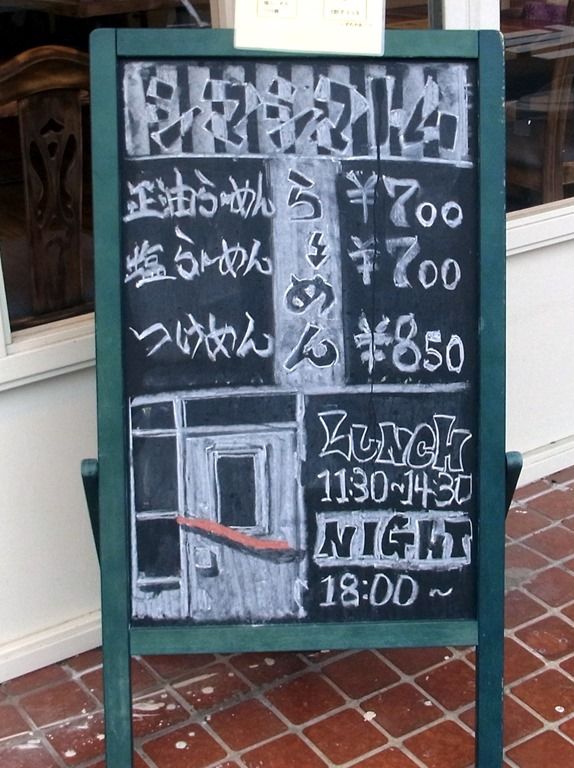 シマシマトム
正油らーめん ¥700
塩らーめん ¥700
つけめん ¥850
らーめん
LUNCH
11:30~14:30
NIGHT
18:00~